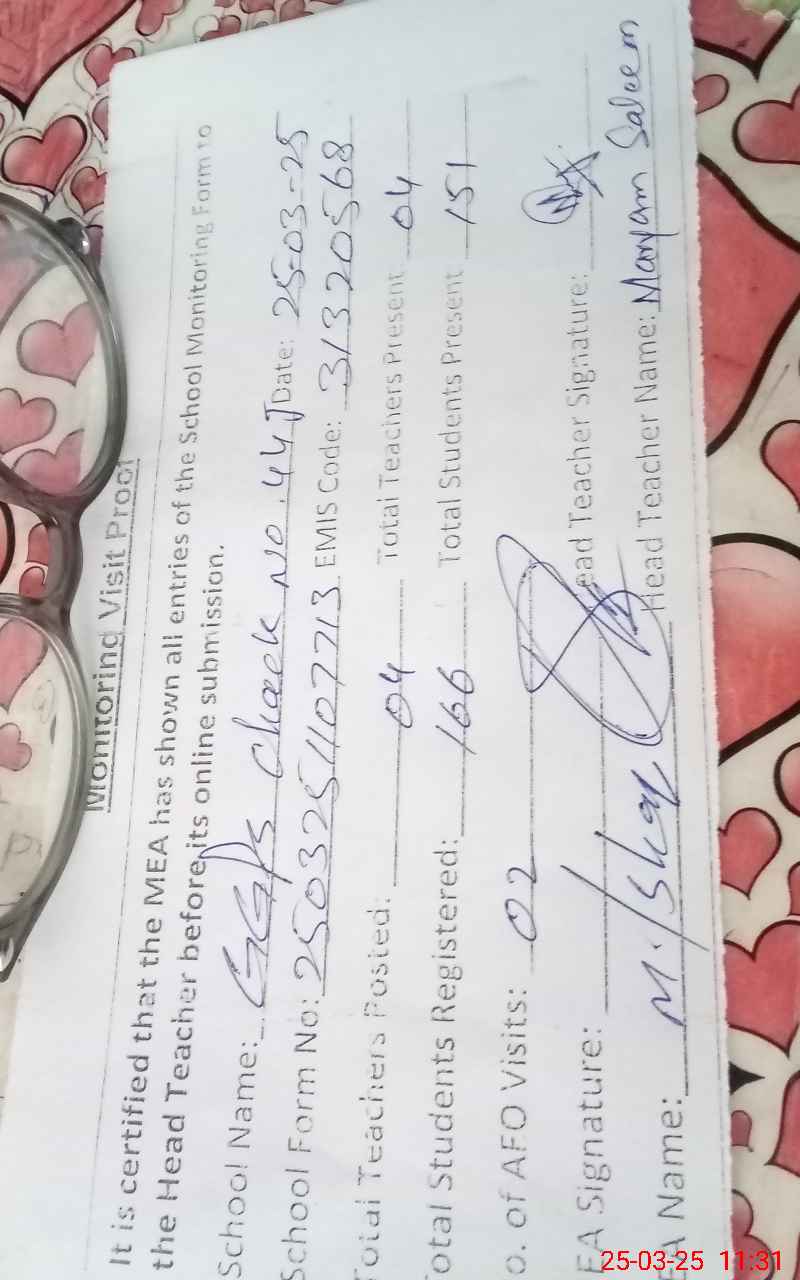 Monitoring Visit Proof
It is certified that the MEA has shown all entries of the School Monitoring Form to
the Head Teacher before its online submission.
School Name: GGPS Chack No. 44 J Date: 25-03-25
School Form No: 2503251107713 EMIS Code: 31320568
Total Teachers Posted: 04 Total Teachers Present 04
Total Students Registered: 166 Total Students Present 151
o. of AEO Visits: 02
EA Signature: ead Teacher Signature:
EA Name: M. Head Teacher Name: Maryam Saleem
25-03-25 11:31